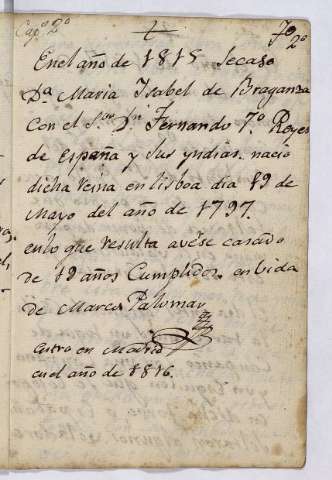 Capº 2º
7º
2º
En el año de 1815 se caso
Dª Maria Isabel de Braganza
Con el Sor Dn Fernando 7.º Reyes
de España y sus yndias. nacio
dicha reina en lisboa dia 19 de
Mayo del año de 1797.
en lo que resulta avese casado
de 19 años Cumplidos. en bida
de Marcos Palomar
entro en Madrid
en el año de 1816.